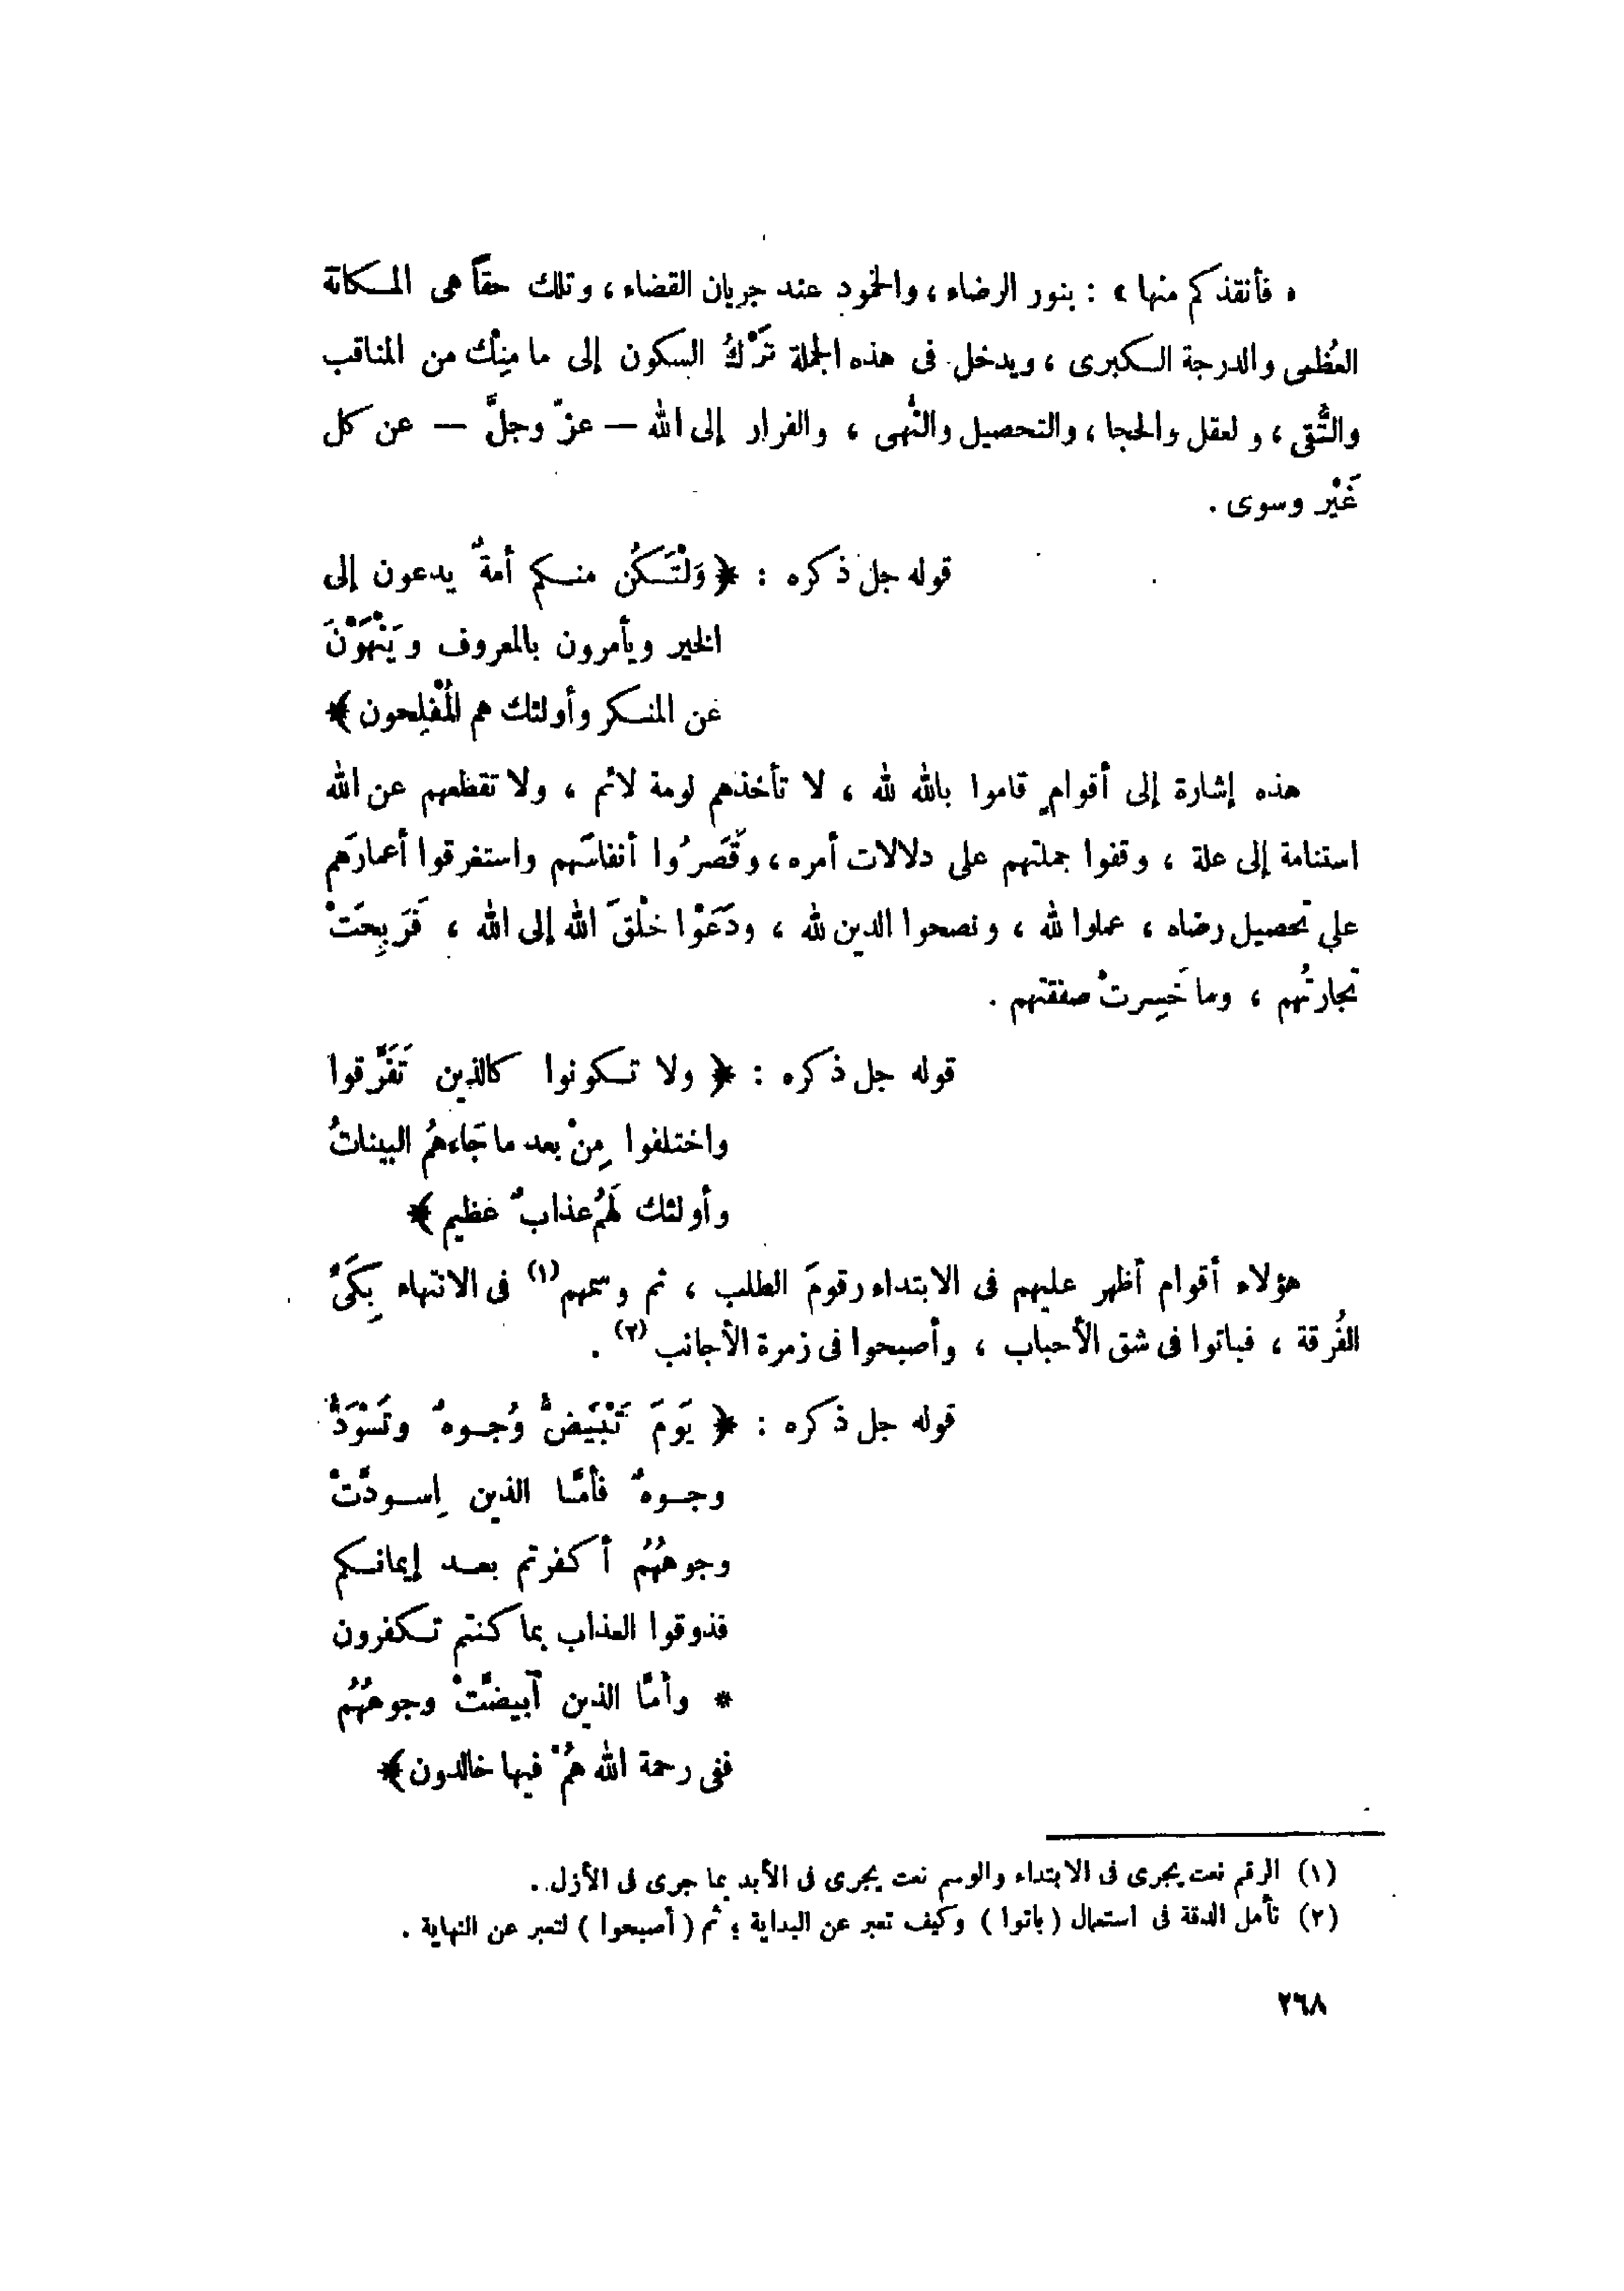 « فأنقذكم منها » : بنور الرضاء ، والخمود عند جريان القضاء ، وتلك حقاً هى المكانة
العُظمى والدرجة الكبرى ، ويدخل فى هذه الجملة تَرْكُ السكون إلى ما مِنْك من المناقب
والتُّقى ، و لعقل والحجا ، والتحصيل والنُّهى ، والفرار إلى الله — عزّ وجلَّ — عن كل
غَيْر وسوى .
قوله جل ذكره : ﴿ وَلْتَكُن منكم أمةٌ يدعون إلى
الخير ويأمرون بالمعروف ويَنْهَوْنَ
عن المنكر وأولئك هم المُفْلِحون ﴾
هذه إشارة إلى أقوامٍ قاموا بالله لله ، لا تأخذهم لومة لائم ، ولا تقطعهم عن الله
استنامة إلى علة ، وقفوا جملتهم على دلالات أمره ، وقَصَرُوا أنفاسَهم واستغرقوا أعمارَهم
على تحصيل رضاه ، عملوا لله ، ونصحوا الدين لله ، ودَعَوْا خلْقَ الله إلى الله ، فَرَبِحَتْ
تجارتُهم ، وما خَسِرتْ صفقتهم .
قوله جل ذكره : ﴿ ولا تكونوا كالذين تَفَرَّقوا
واختلفوا مِنْ بعد ما جَاءهُمُ البيناتُ
وأولئك لَهُم عذابٌ عظيم ﴾
هؤلاء أقوام أظهر عليهم فى الابتداء رقومَ الطلب ، ثم وسمهم (١) فى الانتهاء بِكَىِّ
الفُرقة ، فباتوا فى شق الأحباب ، وأصبحوا فى زمرة الأجانب (٢) .
قوله جل ذكره : ﴿ يَومَ تَبْيَضُّ وُجوهٌ وتَسْوَدُّ
وجوهٌ فأمَّا الذين اِسودَّتْ
وجوهُهُم أكفرتم بعد إيمانكم
فذوقوا العذاب بما كنتم تكفرون
* وأمَّا الذين آبيضَّتْ وجوهُهُم
ففى رحمة الله هُمْ فيها خالدون ﴾
(١) الرقم نعت يجرى فى الابتداء والوسم نعت يجرى فى الأبد بما جرى فى الأزل .
(٢) تأمل الدقة فى استعمال ( باتوا ) وكيف تعبر عن البداية ؛ ثم ( أصبحوا ) لتعبر عن النهاية .
٢٦٨